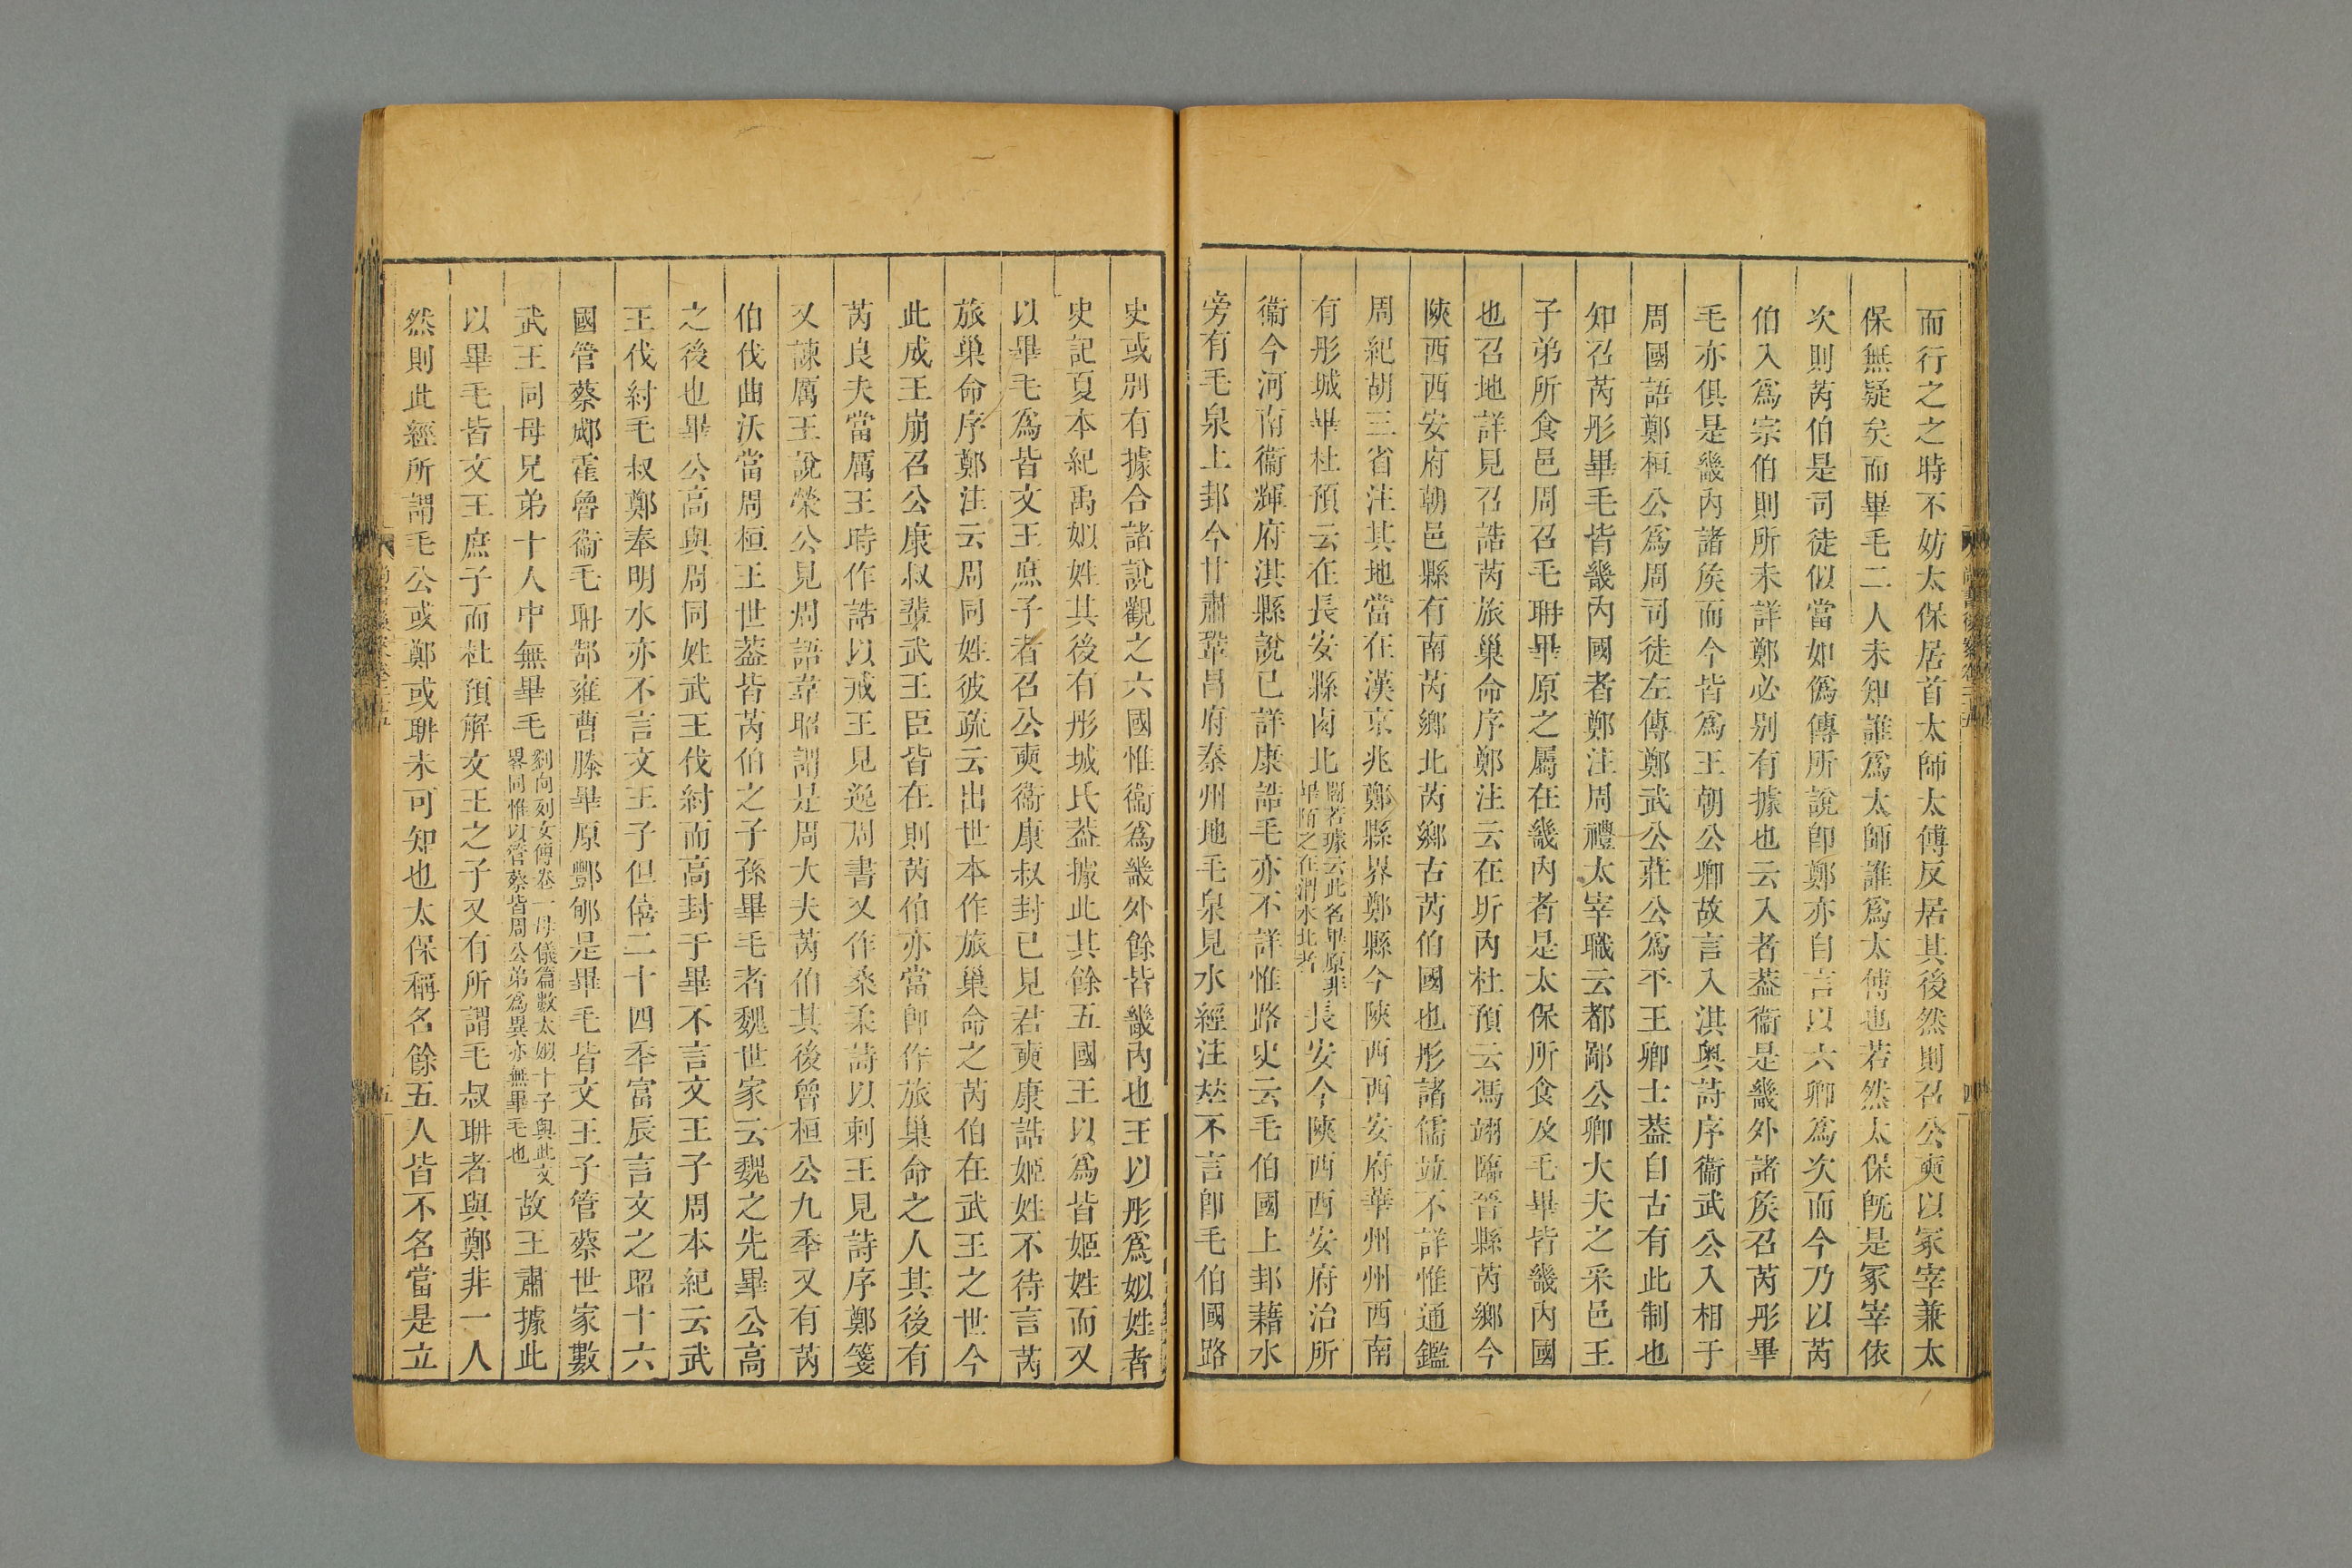 而行之之時不妨太保居首太師太傅反居其後然則召公奭以冢宰兼太
保無疑矣而畢毛二人未知誰爲太師誰爲太傅也若然太保旣是冢宰依
次則芮伯是司徒似當如僞傳所說卽鄭亦自言以六卿爲次而今乃以芮
伯入爲宗伯則所未詳鄭必别有據也云入者葢衞是畿外諸矦召芮彤畢
毛亦俱是畿内諸矦而今皆爲王朝公卿故言入淇奥詩序衞武公入相于
周國語鄭桓公爲周司徒左傳鄭武公莊公爲平王卿士葢自古有此制也
知召芮彤畢毛皆畿内國者鄭注周禮太宰職云都鄙公卿大夫之采邑王
子弟所食邑周召毛聃畢原之屬在畿内者是太保所食及毛畢皆畿内國
也召地詳見召誥芮旅巢命序鄭注云在圻内杜預云馮翊臨晉縣芮鄉今
陝西西安府朝邑縣有南芮鄉北芮鄉古芮伯國也彤諸儒竝不詳惟通鑑
周紀胡三省注其地當在漢京兆鄭縣界鄭縣今陝西西安府華州州西南
有彤城畢杜預云在長安縣西北閻若璩云此名畢原非畢陌之在渭水北者長安今陝西西安府治所
衞今河南衞輝府淇縣說已詳康誥毛亦不詳惟路史云毛伯國上邽藉水
旁有毛泉上邽今甘肅鞏昌府秦州地毛泉見水經注然不言卽毛伯國路
史或别有據合諸說觀之六國惟衞爲畿外餘皆畿内也王以彤爲姒姓者
史記夏本紀禹姒姓其後有彤城氏葢據此其餘五國王以爲皆姬姓而又
以畢毛爲皆文王庶子者召公奭衞康叔封已見君奭康誥姬姓不待言芮
旅巢命序鄭注云周同姓彼疏云出世本作旅巢命之芮伯在武王之世今
此成王崩召公康叔輩武王臣皆在則芮伯亦當卽作旅巢命之人其後有
芮良夫當厲王時作誥以戒王見逸周書又作桑柔詩以刺王見詩序鄭箋
又諫厲王說榮公見周語韋昭謂是周大夫芮伯其後曾桓公九秊又有芮
伯伐曲沃當周桓王世葢皆芮伯之子孫畢毛者魏世家云魏之先畢公高
之後也畢公高與周同姓武王伐紂而高封于畢不言文王子周本紀云武
王伐紂毛叔鄭奉明水亦不言文王子但僖二十四秊富辰言文之昭十六
國管蔡郕霍魯衞毛聃郜雍曹滕畢原酆郇是畢毛皆文王子管蔡世家數
武王同母兄弟十人中無畢毛劉向列女傳卷一母儀篇數太姒十子與此文畧同惟以管蔡皆周公弟爲異亦無畢毛也故王肅據此
以畢毛皆文王庶子而杜預解文王之子又有所謂毛叔聃者與鄭非一人
然則此經所謂毛公或鄭或聃未可知也太保稱名餘五人皆不名當是立